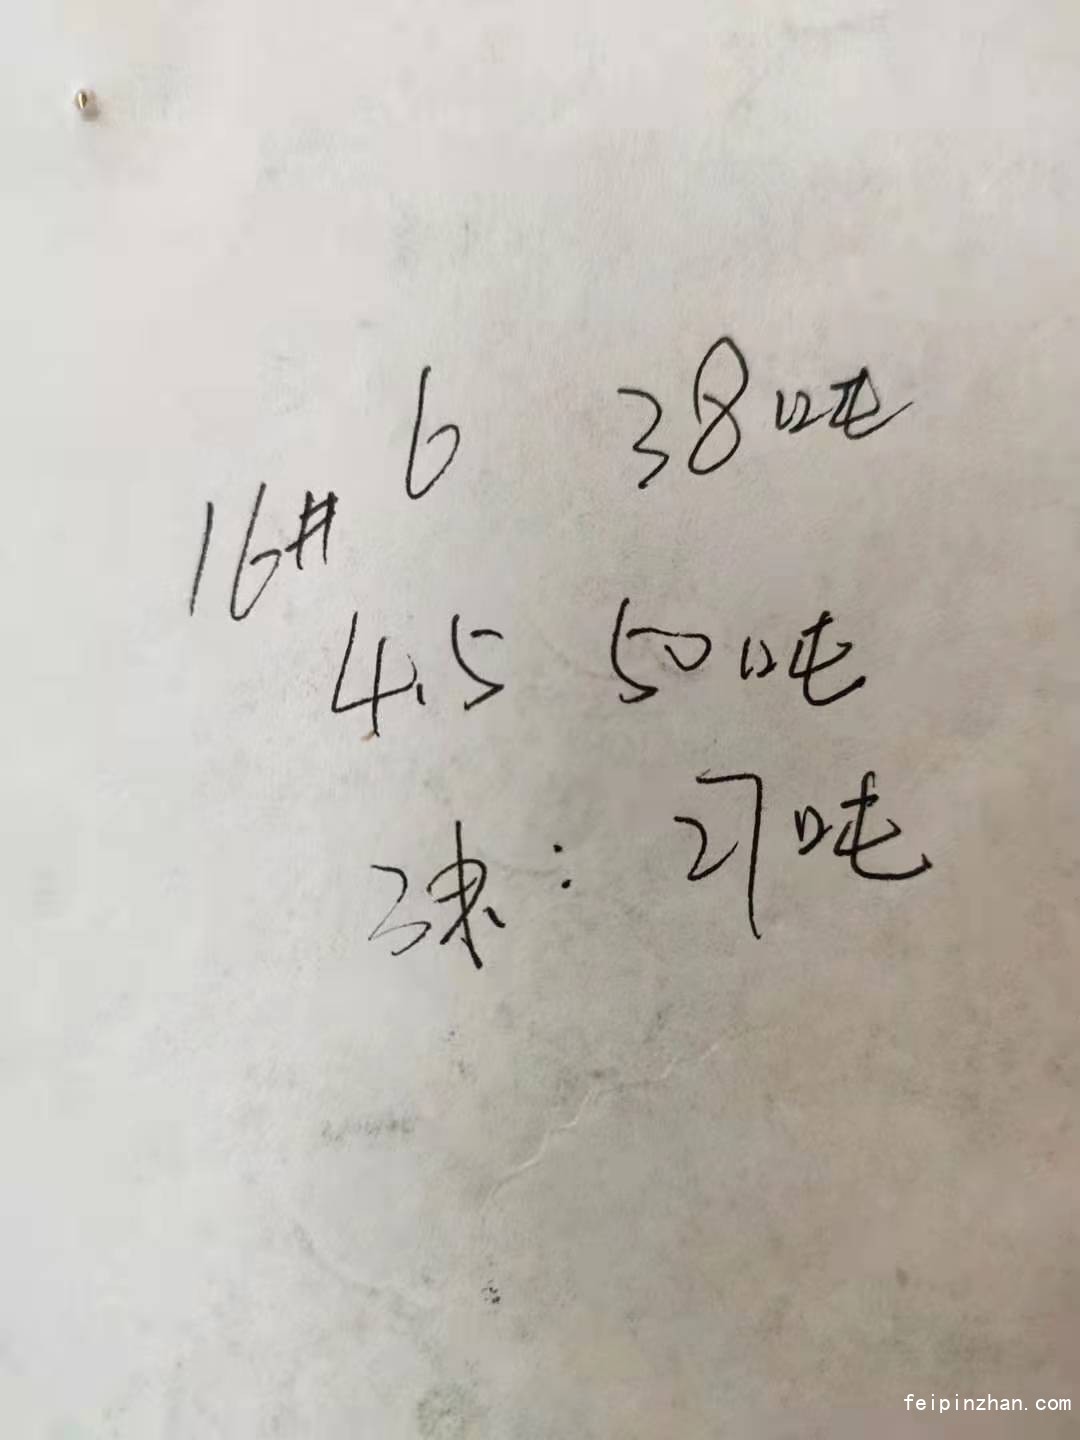 6 38吨
16#
4.5 50吨
球: 27吨
feipinzhan.com